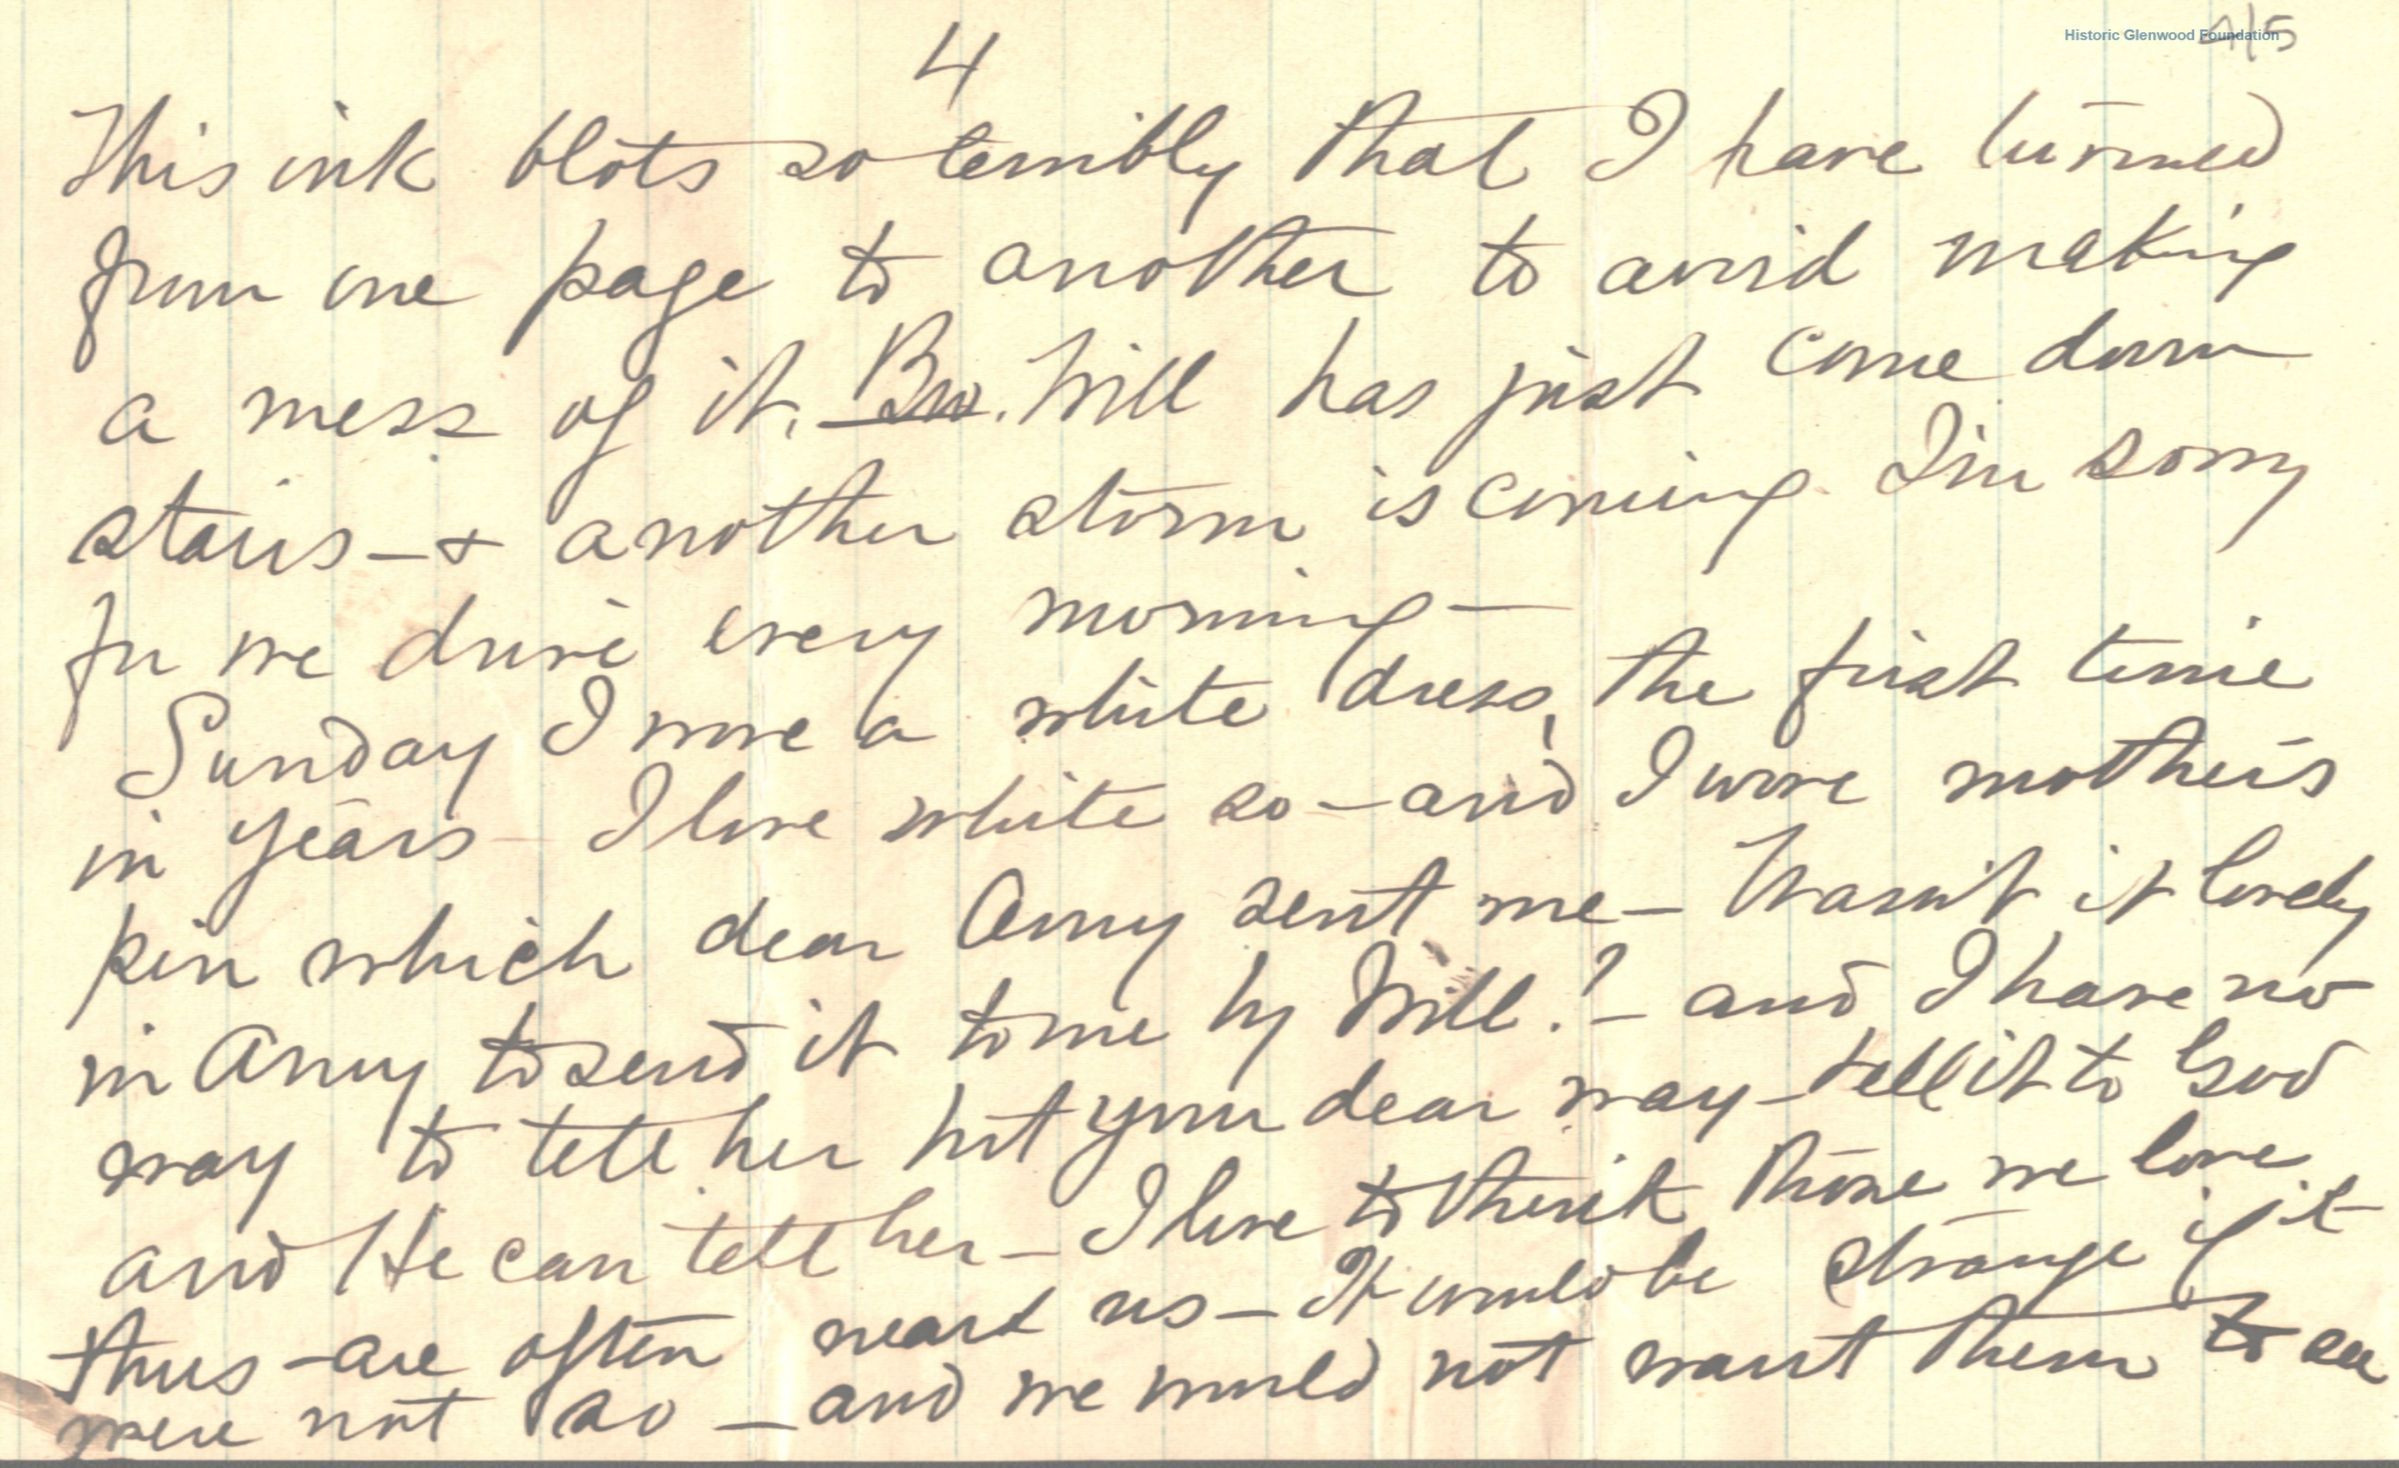 4
4/5
Historic Glenwood Foundation
This ink blots so terribly that I have turned
from one page to another to avoid making
a mess of it. Bro. Will has just come down
stairs - & another storm is coming I'm sorry
for we drive every morning -
Sunday I wore a white dress, the first time
in years - I love white so - and I wore mother's
pin which dear Amy sent me - Wasn't it lovely
in Amy to send it to me by Will.? - and I have no
way to tell her but your dear way - tell it to God
and He can tell her - I love to think those we love
thus - are often near us - It would be strange if it
were not so - and we would not want them to see